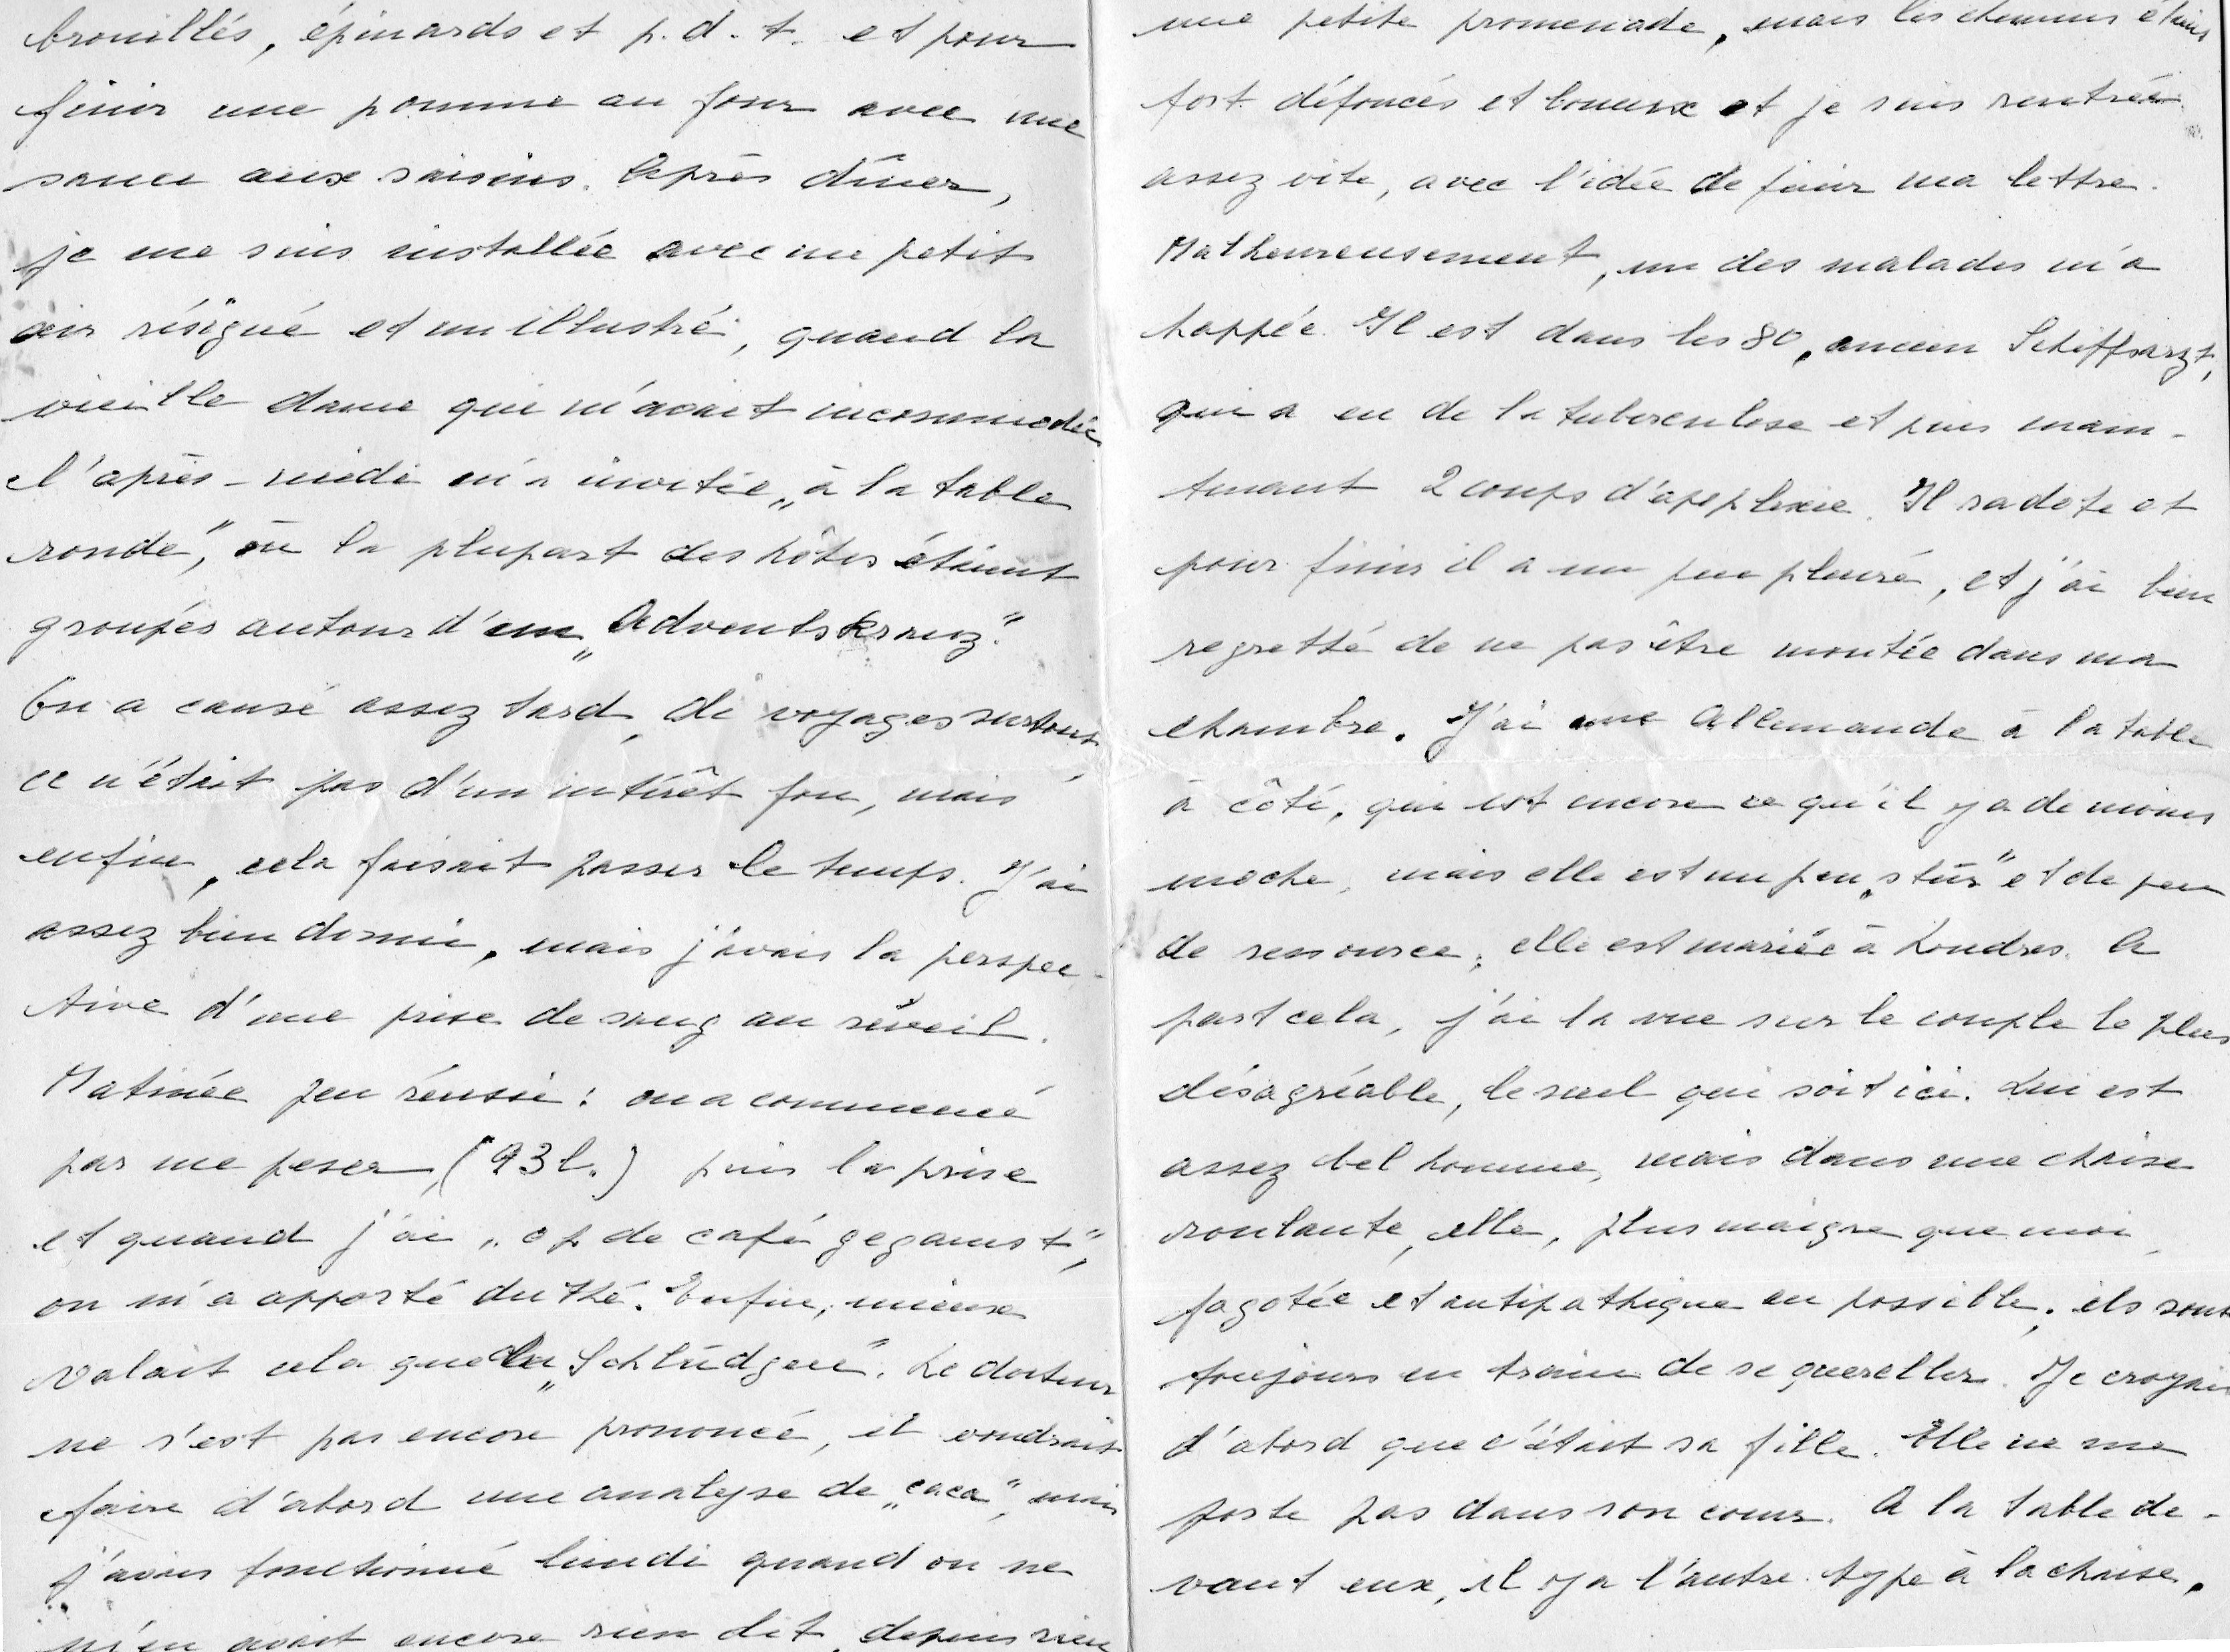 brouillés, épinards et p.d.t. et pour
finir une pomme au four avec une
sauce aux raisins. Après dîner,
je me suis installée avec un petit
air résigné et un illustré, quand la
vieille dame qui m'avait incommodée
l'après-midi m'a invitée „à la table
ronde", où la plupart des hôtes étaient
groupés autour d'un „Adventskranz".
On a causé assez tard, de voyages surtout
ce n'était pas d'un intérêt fou, mais
enfin, cela faisait passer le temps. J'ai
assez bien dormi, mais j'avais la perspec-
tive d'une prise de sang au réveil.
Matinée peu réussie: on a commencé
par me peser (93 l.) puis la prise
et quand j'ai „op de café gegaust",
on m'a apporté du thé. Enfin, mieux
valait cela que la „Schlüdgen". Le docteur
ne s'est pas encore prononcé, il voudrait
faire d'abord une analyse de „caca", mais
j'avais fonctionné lundi quand on ne
m'en avait encore rien dit, depuis rien
une petite promenade, mais les chemins étaient
fort défoncés et boueux et je suis rentrée
assez vite, avec l'idée de finir ma lettre.
Malheureusement, un des malades m'a
happée. Il est dans les 80, ancien Schiffsarzt,
qui a eu de la tuberculose et puis main-
tenant 2 coups d'apoplexie. Il radote et
pour finir il a un peu pleuré, et j'ai bien
regretté de ne pas être montée dans ma
chambre. J'ai une Allemande à la table
à côté, qui est encore ce qu'il y a de moins
moche, mais elle est un peu „stur" et de peu
de ressource; elle est mariée à Londres. A
part cela, j'ai la vue sur le couple le plus
désagréable, le seul qui soit ici. Lui est
assez bel homme, mais dans une chaise
roulante, elle, plus maigre que moi,
fagotée et antipathique au possible; ils sont
toujours en train de se quereller. Je croyais
d'abord que c'était sa fille. Elle ne me
porte pas dans son cœur. A la table de-
vant eux, il y a l'autre type à la chaise,